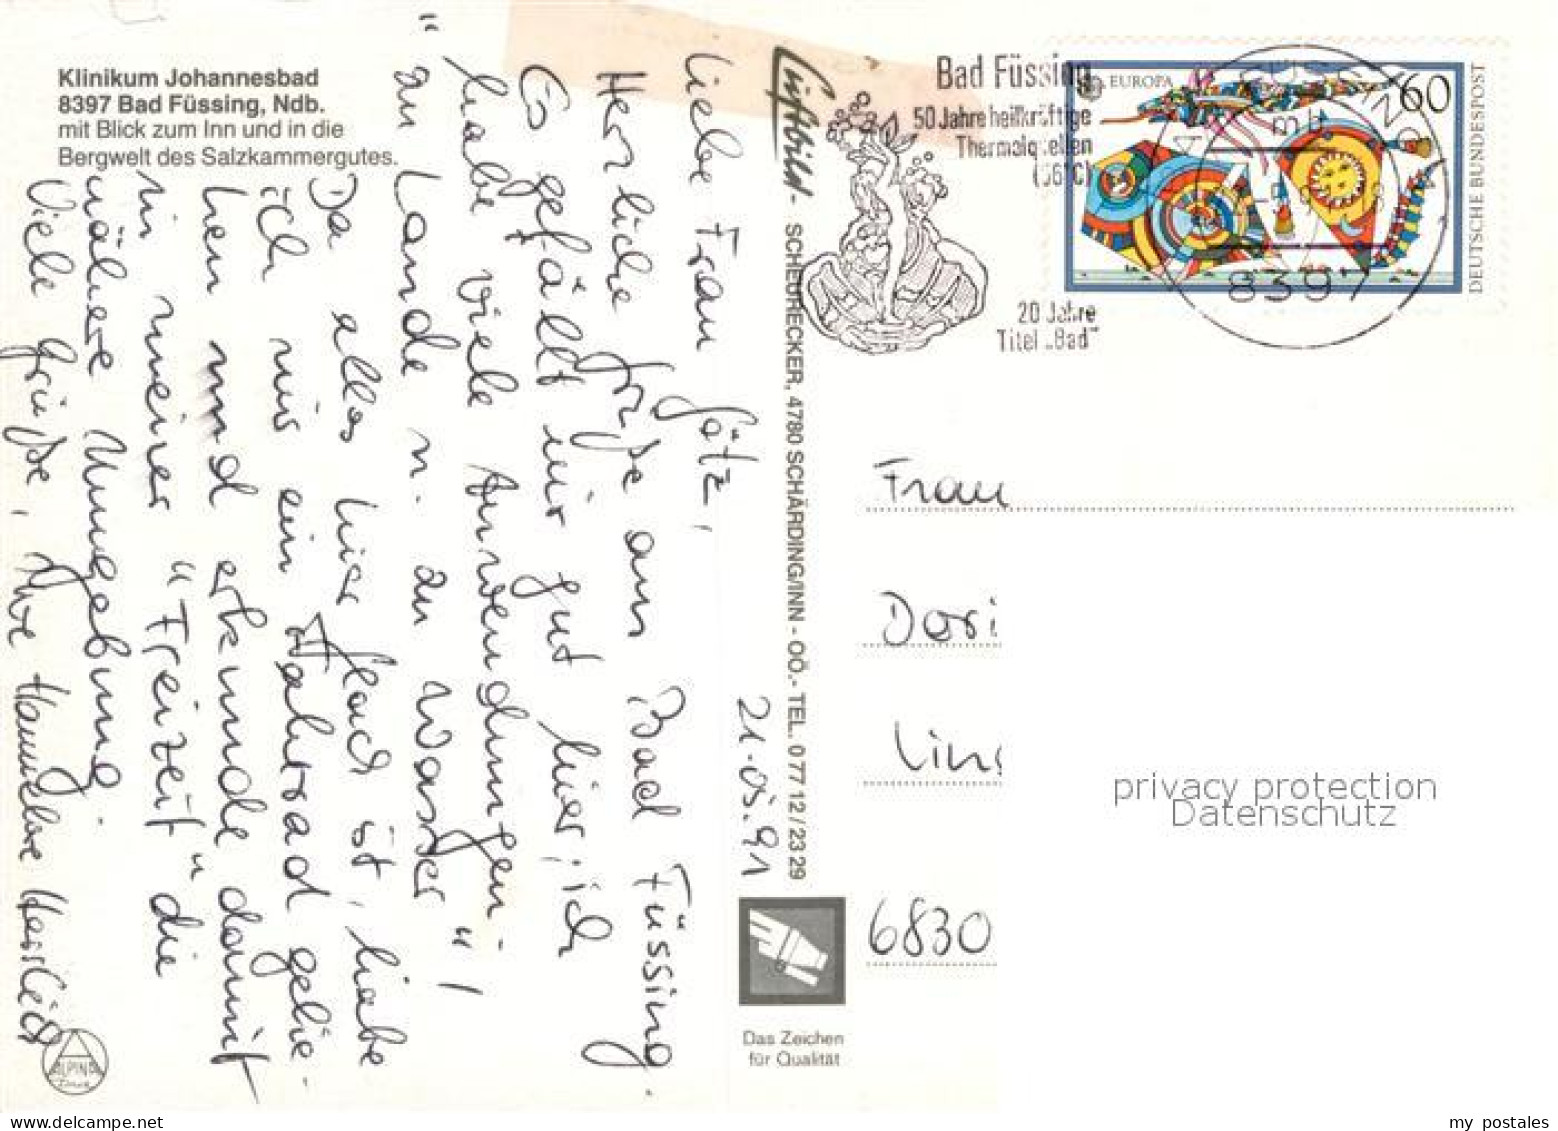 Klinikum Johannesbad
8397 Bad Füssing, Ndb.
mit Blick zum Inn und in die
Bergwelt des Salzkammergutes.
21.05.91
Liebe Frau Götz,
Herzliche Grüße aus Bad Füssing.
Es gefällt mir gut hier; ich
habe viele Anwendungen
"zu Lande u. zu Wasser"!
Da alles hier flach ist, habe
ich mir ein Fahrrad gelie-
hen und erkunde damit
in meiner "Freizeit" die
nähere Umgebung.
Viele Grüße, Ihre Hannelore
ALPINA
Druck
Luftbild - SCHEURECKER, 4780 SCHÄRDING/INN - OÖ.- TEL. 0 77 12 / 23 29
Das Zeichen
für Qualität
Bad Füssing
50 Jahre heilkräftige
Thermalquellen
(56°C)
20 Jahre
Titel „Bad"
EUROPA
60
DEUTSCHE BUNDESPOST
8397
Frau
Dori
Ling
6830
privacy protection
Datenschutz
www.delcampe.net
my_postales